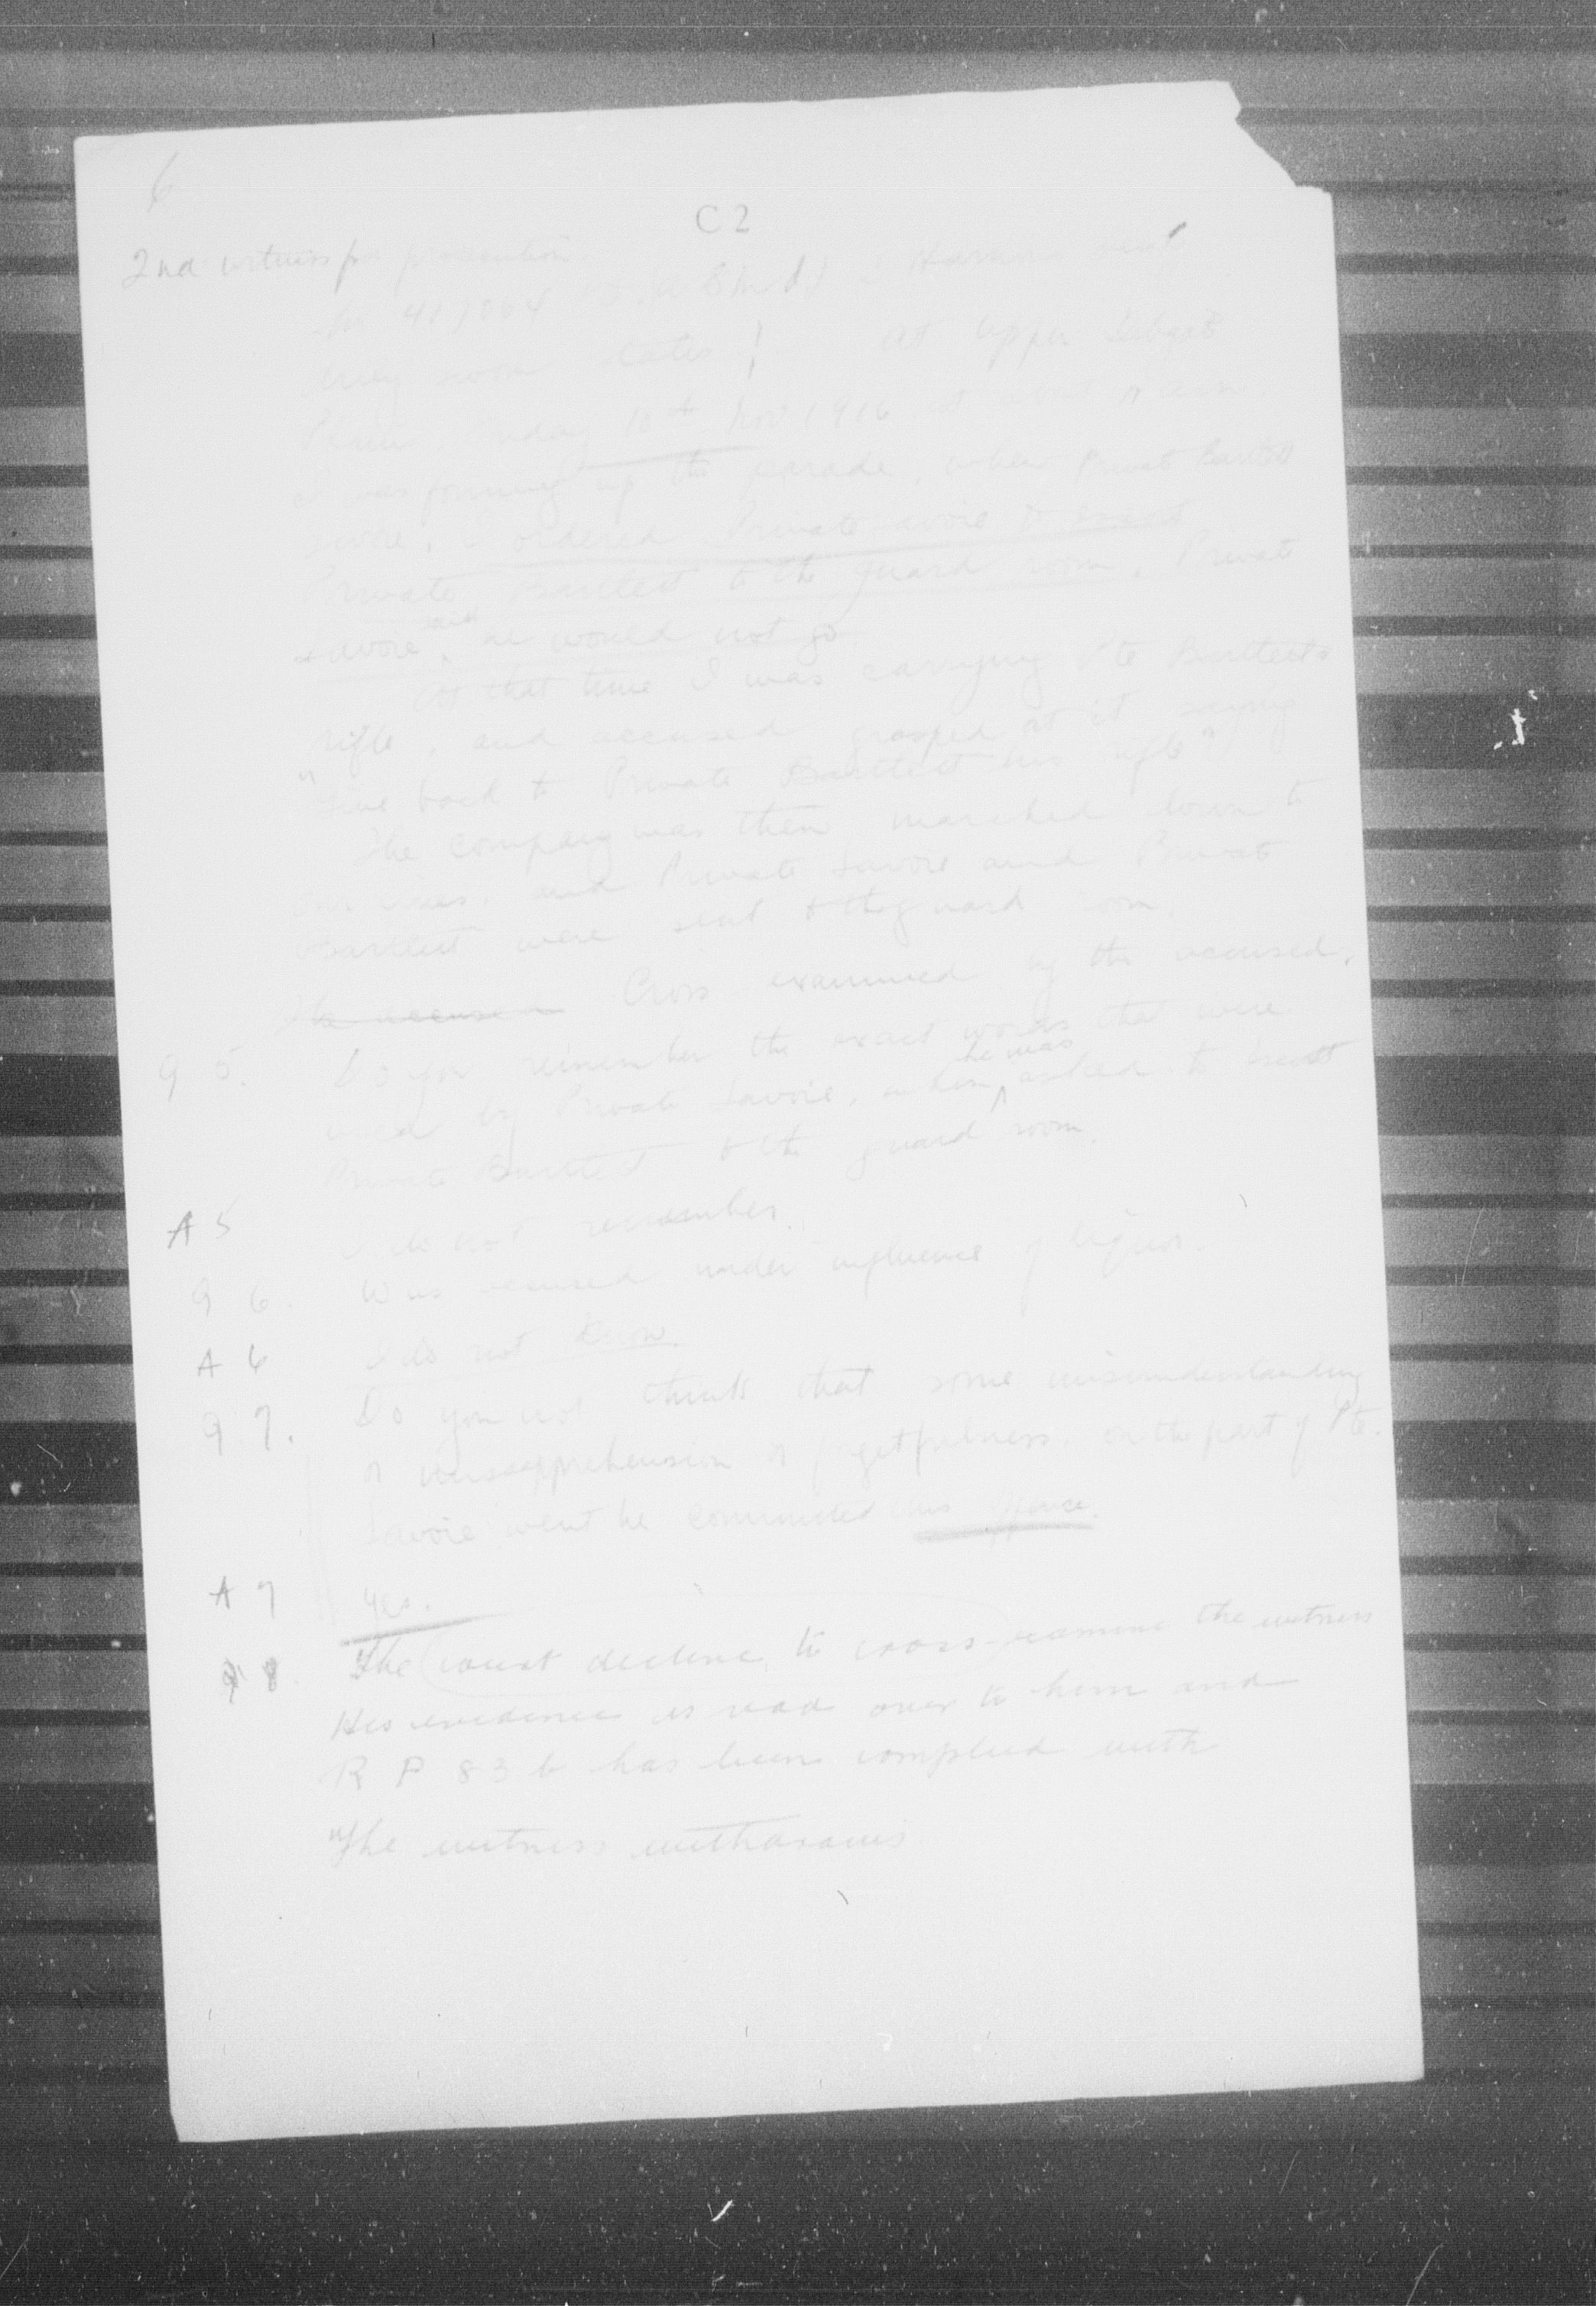 6
C 2
2nd witness for prosecution.
No 417064
states At Upper
10th Nov 1916 at about
I was forming up the parade, when Private Bartlett
swore, I ordered Private Savoie to escort
Private Bartlett to the guard room. Private
Savoie, said he would not go
At that time I was carrying Pte Bartlett's
rifle, and accused grasped at it saying
"Give back to Private Bartlett his rifle"
The company was then marched down to
our lines, and Private Savoie and Private
Bartlett were sent to the guard room.
The accused Cross examined by the accused.
Q 5. Do you remember the exact words that were
used by Private Savoie, when he was asked to escort
Private Bartlett to the guard room.
A 5 I do not remember.
Q 6. Was accused under influence of liquor.
A 6 I do not know.
Q 7. Do you not think that some misunderstanding
or missapprehension or forgetfulness, on the part of Pte.
Savoie went he committed this offence.
A 7 Yes.
Q 8. The court decline to cross-examine the witness
His evidence is read over to him and
R P 83 b has been complied with
The witness withdraws